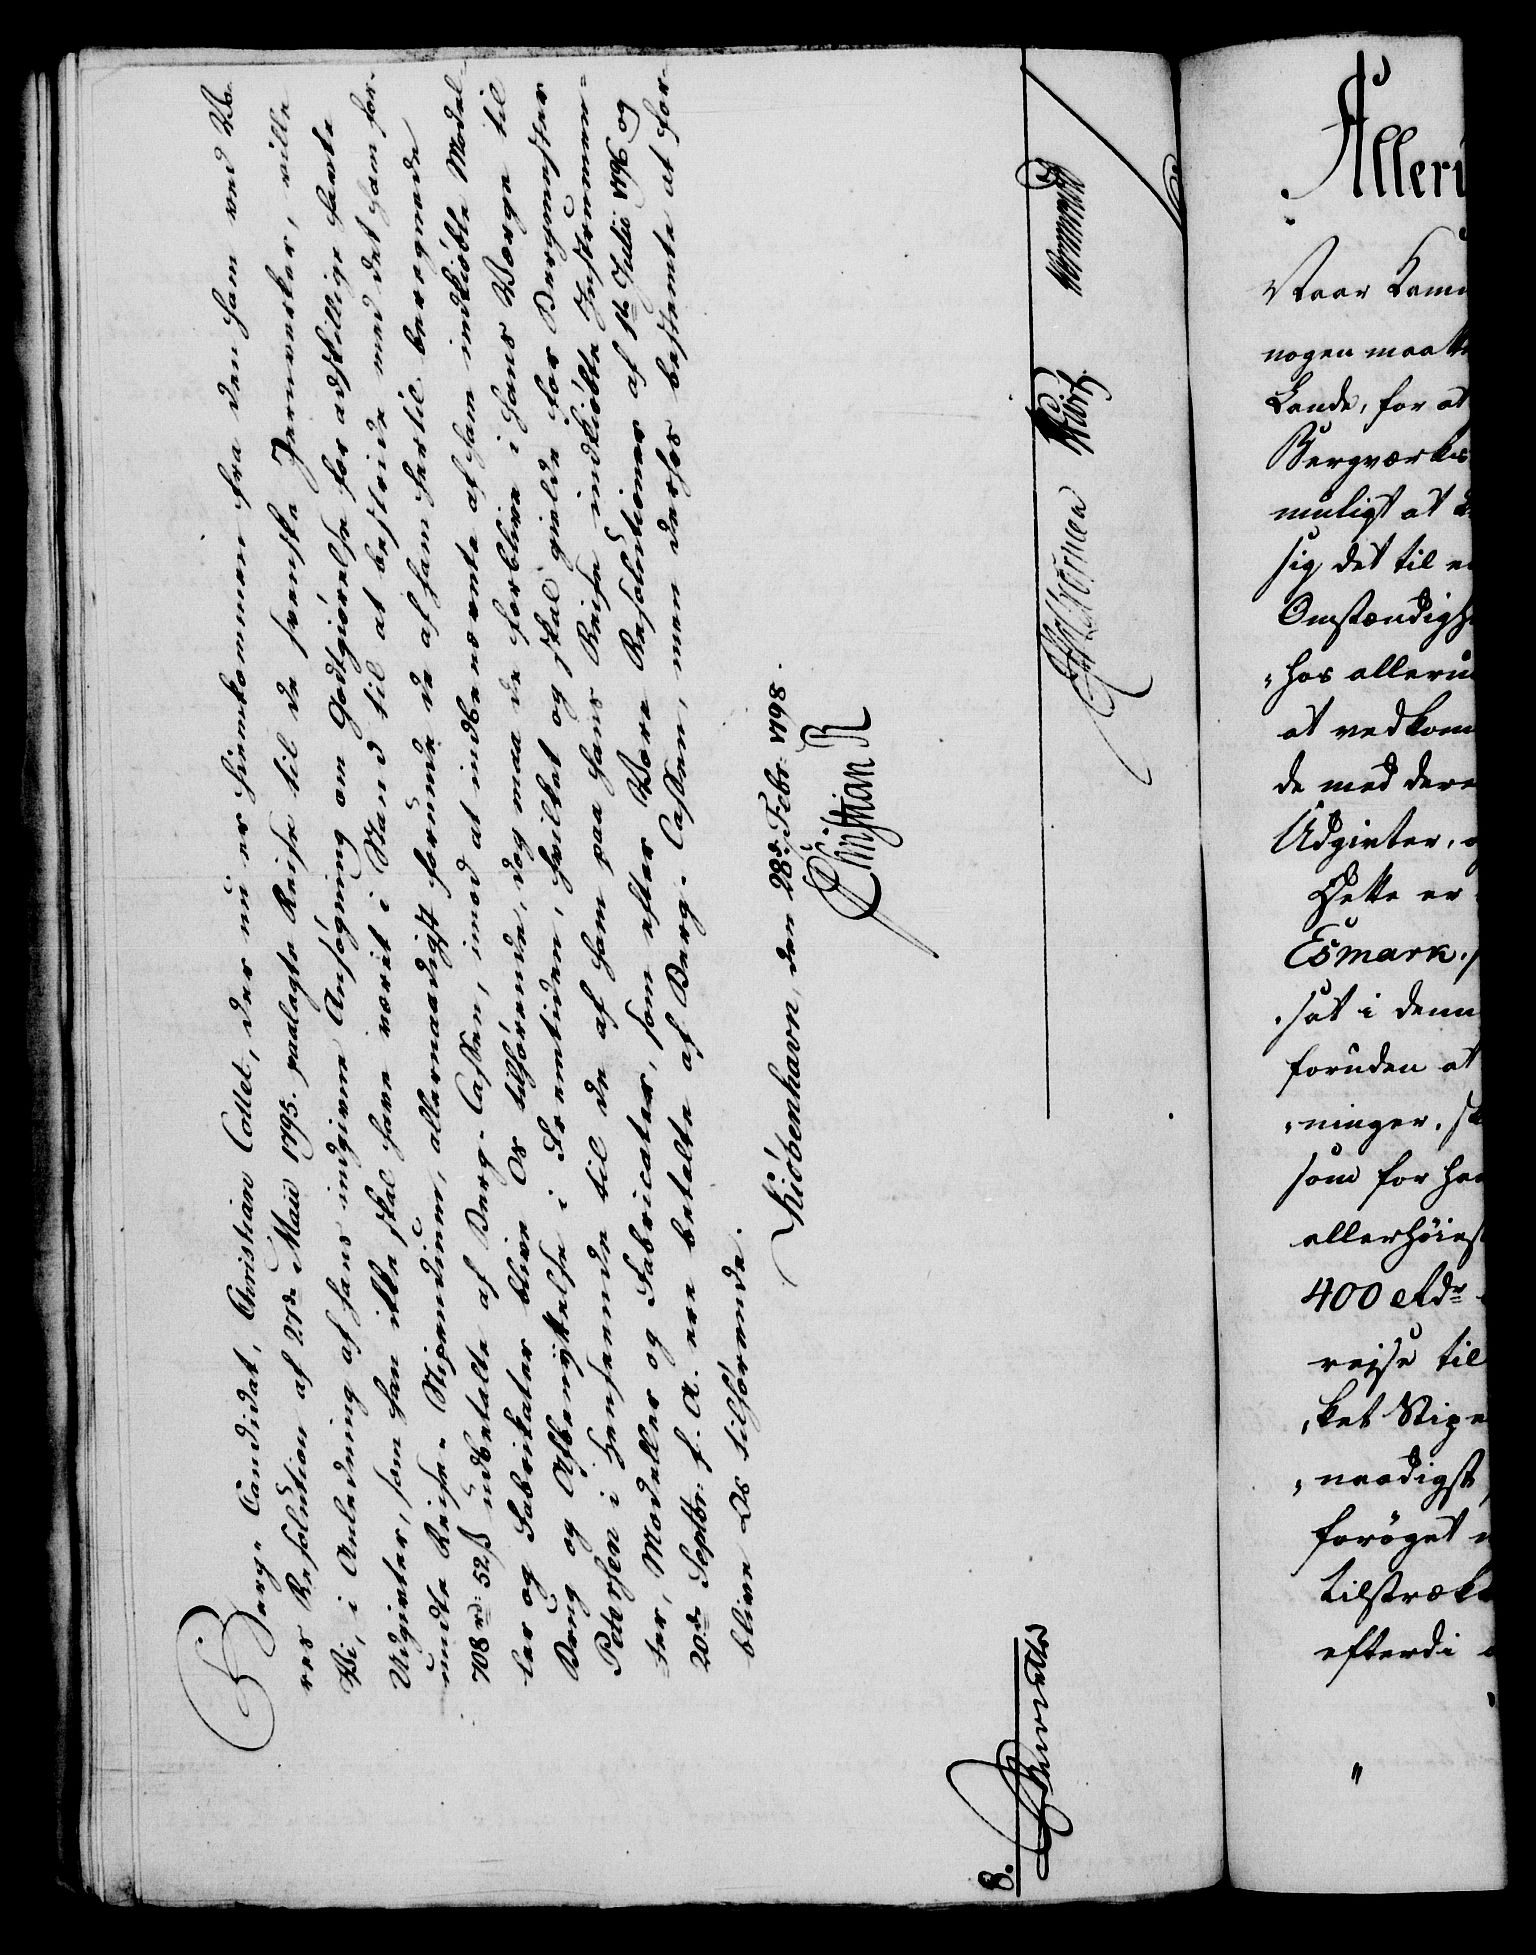 Berg-Candidat, Christian Collet, der nu er hiemkommen fra den ham ved Vo-
res Resolution af 27de Maii 1795. paalagte Reise til de svenske Jernværker, ville
Vi, i Anledning af hans indgivne Ansøgning om Godtgiørelse for adskillige havte
Udgivter, som han ikke skal have været i Stand til at bestride med det ham for-
undte Reise-Stipendium, allernaadigst forunde de af ham hertil beregnede
708 rd 52 ß udbetalte af Berg-Cassen, imod at indbenævnte af ham indkiøbte Model-
ler og Fabrikater blive Os tilhørende, dog maa de forblive i hans Værge til
Brug og Afbenyttelse i Fremtiden, hvilket og skal gielde for Bergmester
Petersen i Henseende til de af ham paa hans Reise indkiøbte Instrumen-
ter, Modeller og Fabricater, som efter Vore Resolutioner af 1te Julii 1796 og
20de Septbr. f. A. ere betalte af Berg-Cassen, men derhos bestemte at for-
blive Os tilhørende.
Kiøbenhavn, den 28de Febr. 1798.
Christian R
8.
Alleru
Naar
nogen maatte
Lande, for at
Bergværks
muligt at
sig det til
Omstændigh
hos alleru
at vedkom
de med dere
Udgivter,
Dette er
Esmark.
sat i denn
foruden at
ninger, sk
som for ha
allerhøiest
400 Rdr
rejse til
ket Stipe
naadigst
forøget
tilstræk
efterdi
"